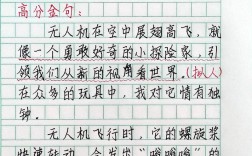 高分金句：
无人机在空中展翅高飞，就
像一个勇敢好奇的小探险家，引
领我们从新的视角看世界。(拟人)
在众多的玩具中，我对它情有独
钟。
无人机飞行时，它的螺旋桨
快速转动，会发出“嗡嗡嗡”的